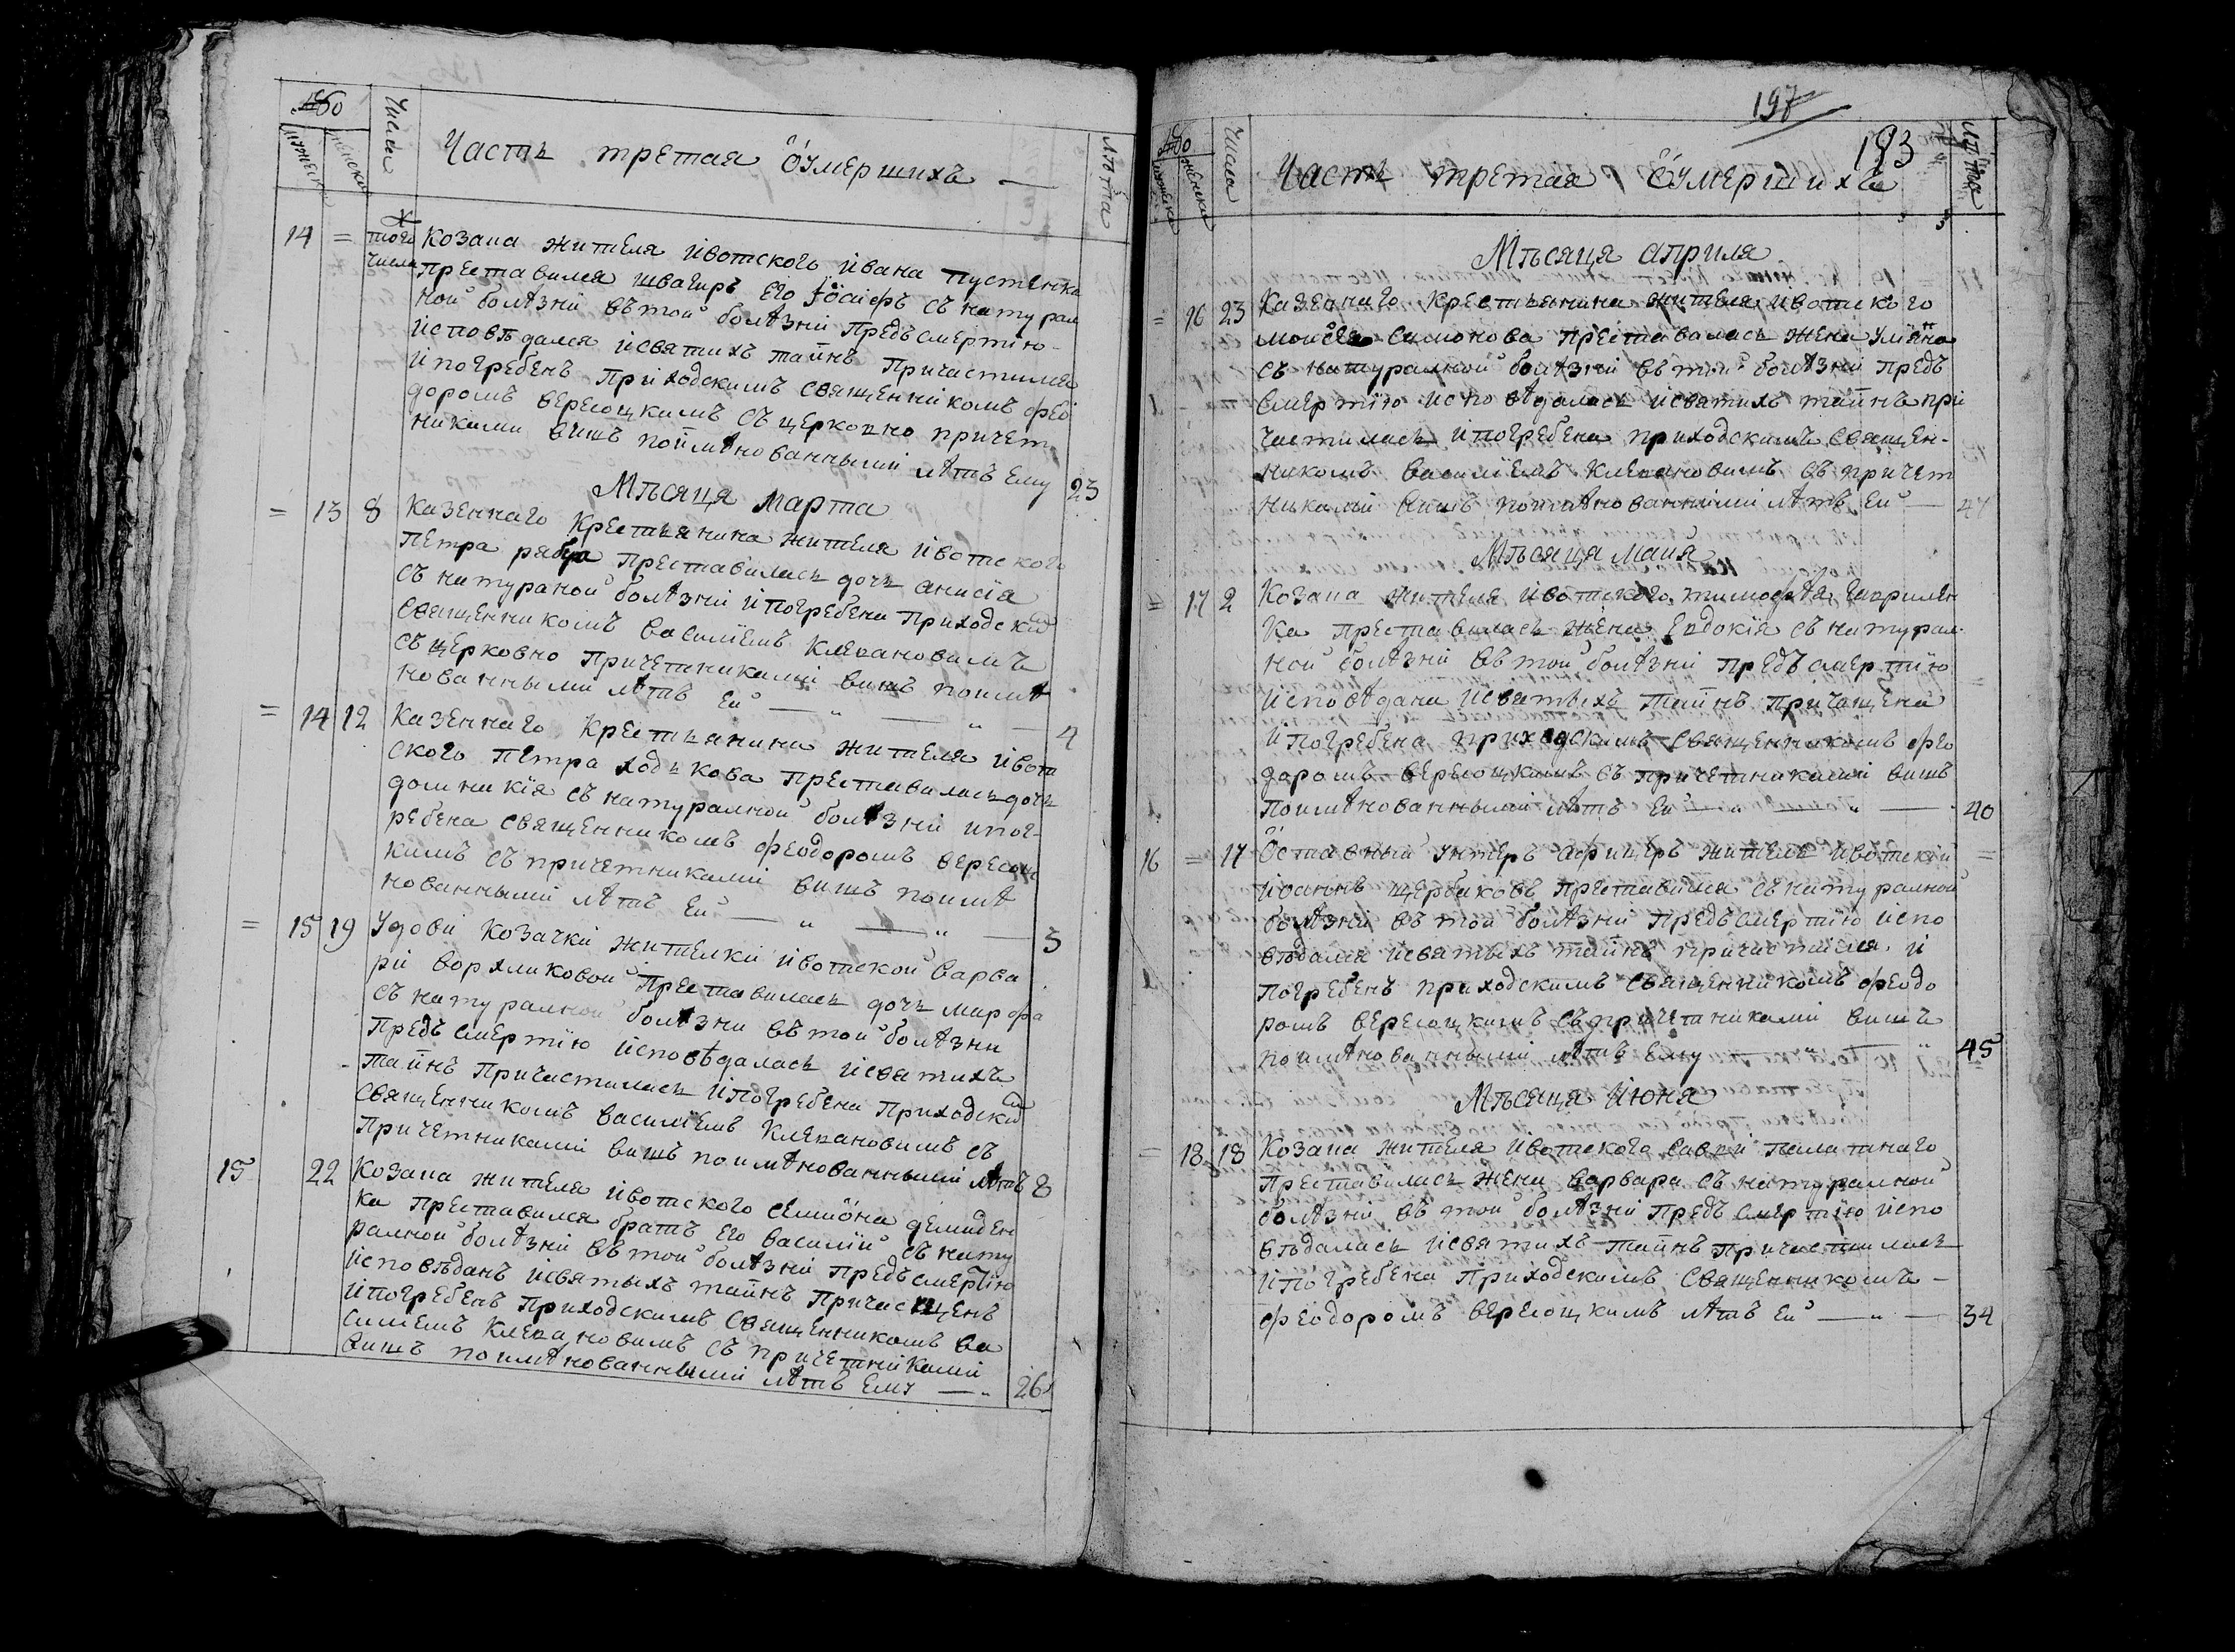 Часть третая Ö умершихъ —
Лѣта
Числа
мужеск
женска
14 = того числа Козака жителя ивотского ивана пустѣнка
преставился швагиръ его Іöсифъ съ натурал
ной болѣзни въ той болѣзни предъ смертїю-
исповѣдался и святихъ таинъ причастился
и погребенъ приходскимъ священникомъ фео
доромъ верегоцкимъ съ церковно причет
никами вишъ поимѣнованными лѣтъ ему 23
Мѣсяця Марта
= 13 8 Казеннаго крестьянина жителя ивотского
петра рябца преставилась дочь анисїя
съ натураной болѣзни и погребена приходским
священникомъ василїемъ клевановимъ
съ церковно причетниками вишъ поимѣ
нованными лѣтъ ей — „ — „ — 4
= 14 12 Казеннаго крестьянина жителя ивот
ского петра ходькова преставилась дочь
домникїя съ натуралной болѣзни и пог-
ребена священникомъ феодоромъ верегоц
кимъ съ причетниками вишъ поимѣ
нованными лѣтъ ей — „ — „ — 3
= 15 19 Удови козачки жителки ивотской варва
ри ворхликовой преставилась дочь марфа
съ натуралной болѣзни въ той болѣзни
предъ смертїю исповѣдалась и святихъ
таинъ причастилась и погребена приходским
священникомъ василїемъ клевановимъ съ
причетниками вишъ поимѣнованными лѣтъ 8
15 22 Козака жителя ивотского семиöна демиден
ка преставился братъ его василий съ нату
ралной болѣзни въ той болѣзни предъ смертїю
исповѣданъ и святыхъ таинъ причащенъ
и погребенъ приходскимъ священникомъ ва
силїемъ клевановимъ съ причетниками
вишъ поимѣнованными лѣтъ ему — „ 26
197
193
мужеска
женска
Числа
Часть третая Ö умершихъ
Лѣта
Мѣсяця априля
= 16 23 Казеннаго крестьянина жителя ивотского
моисея симонова преставалась жена улїяна
съ натуралной болѣзни въ той болѣзни предъ
смертїю исповѣдалась и святихъ таинъ при
частилась и погребена приходскимъ священ-
никомъ василїемъ клевановимъ съ причет
никами вишъ поимѣнованними лѣтъ ей — 47
Мѣсяця маия
= 17 2 Козака жителя ивотского тимофѣя гаврилен
ка преставилась жена Евдокїя съ натурал-
ной болѣзни въ той болѣзни предъ смертїю
исповѣдана и святыхъ таинъ причащена
и погребена приходскимъ священникомъ фео
доромъ верегоцкимъ съ причетниками вишъ
поимѣнованными лѣтъ ей — „ — 40
16 = 17 Öставный унтеръ афицеръ житель ивотский
иоаннъ щербаковъ преставился съ натуралной
болѣзни въ той болѣзни предъ смертїю испо
вѣдался и святыхъ таинъ причастился и
погребенъ приходскимъ священникомъ феодо
ромъ верегоцкимъ съ причетниками вишъ
поимѣнованными лѣтъ ему — „ — „ 45
Мѣсяця Июня
= 18 18 Козака жителя ивотского савви
преставилась жена варвара съ натуралной
болѣзни въ той болѣзни предъ смертїю испо
вѣдалась и святихъ таинъ причастилась
и погребена приходскимъ священникомъ -
феодоромъ верегоцкимъ лѣтъ ей — „ — 34